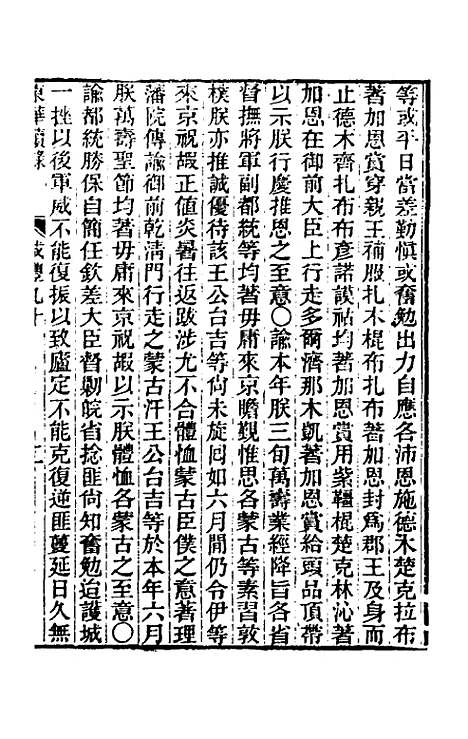 等或平日當差勤慎或奮勉出力自應各沛恩施德木楚克拉布
著加恩賞穿親王補服扎木棍布扎布著加恩封爲郡王及身而
止德木齊扎布布彥諾謨祜均著加恩賞用紫韁棍楚克林沁著
加恩在御前大臣上行走多爾濟那木凱著加恩賞給頭品頂帶
以示朕行慶推恩之至意〇諭本年朕三旬萬壽業經降旨各省
督撫將軍副都統等均著毋庸來京瞻覲惟思各蒙古等素習敦
樸朕亦推誠優待該王公台吉等尙未旋囘如六月閒仍令伊等
來京祝嘏正値炎暑往返跋涉尤不合體恤蒙古臣僕之意著理
藩院傳諭御前乾淸門行走之蒙古汗王公台吉等於本年六月
朕萬壽聖節均著毋庸來京祝嘏以示朕體恤各蒙古之至意〇
諭都統勝保自簡任欽差大臣督勦皖省捻匪尙知奮勉迨護城
一挫以後軍威不能復振以致廬定不能克復逆匪蔓延日久無
東華續錄
咸豐九十